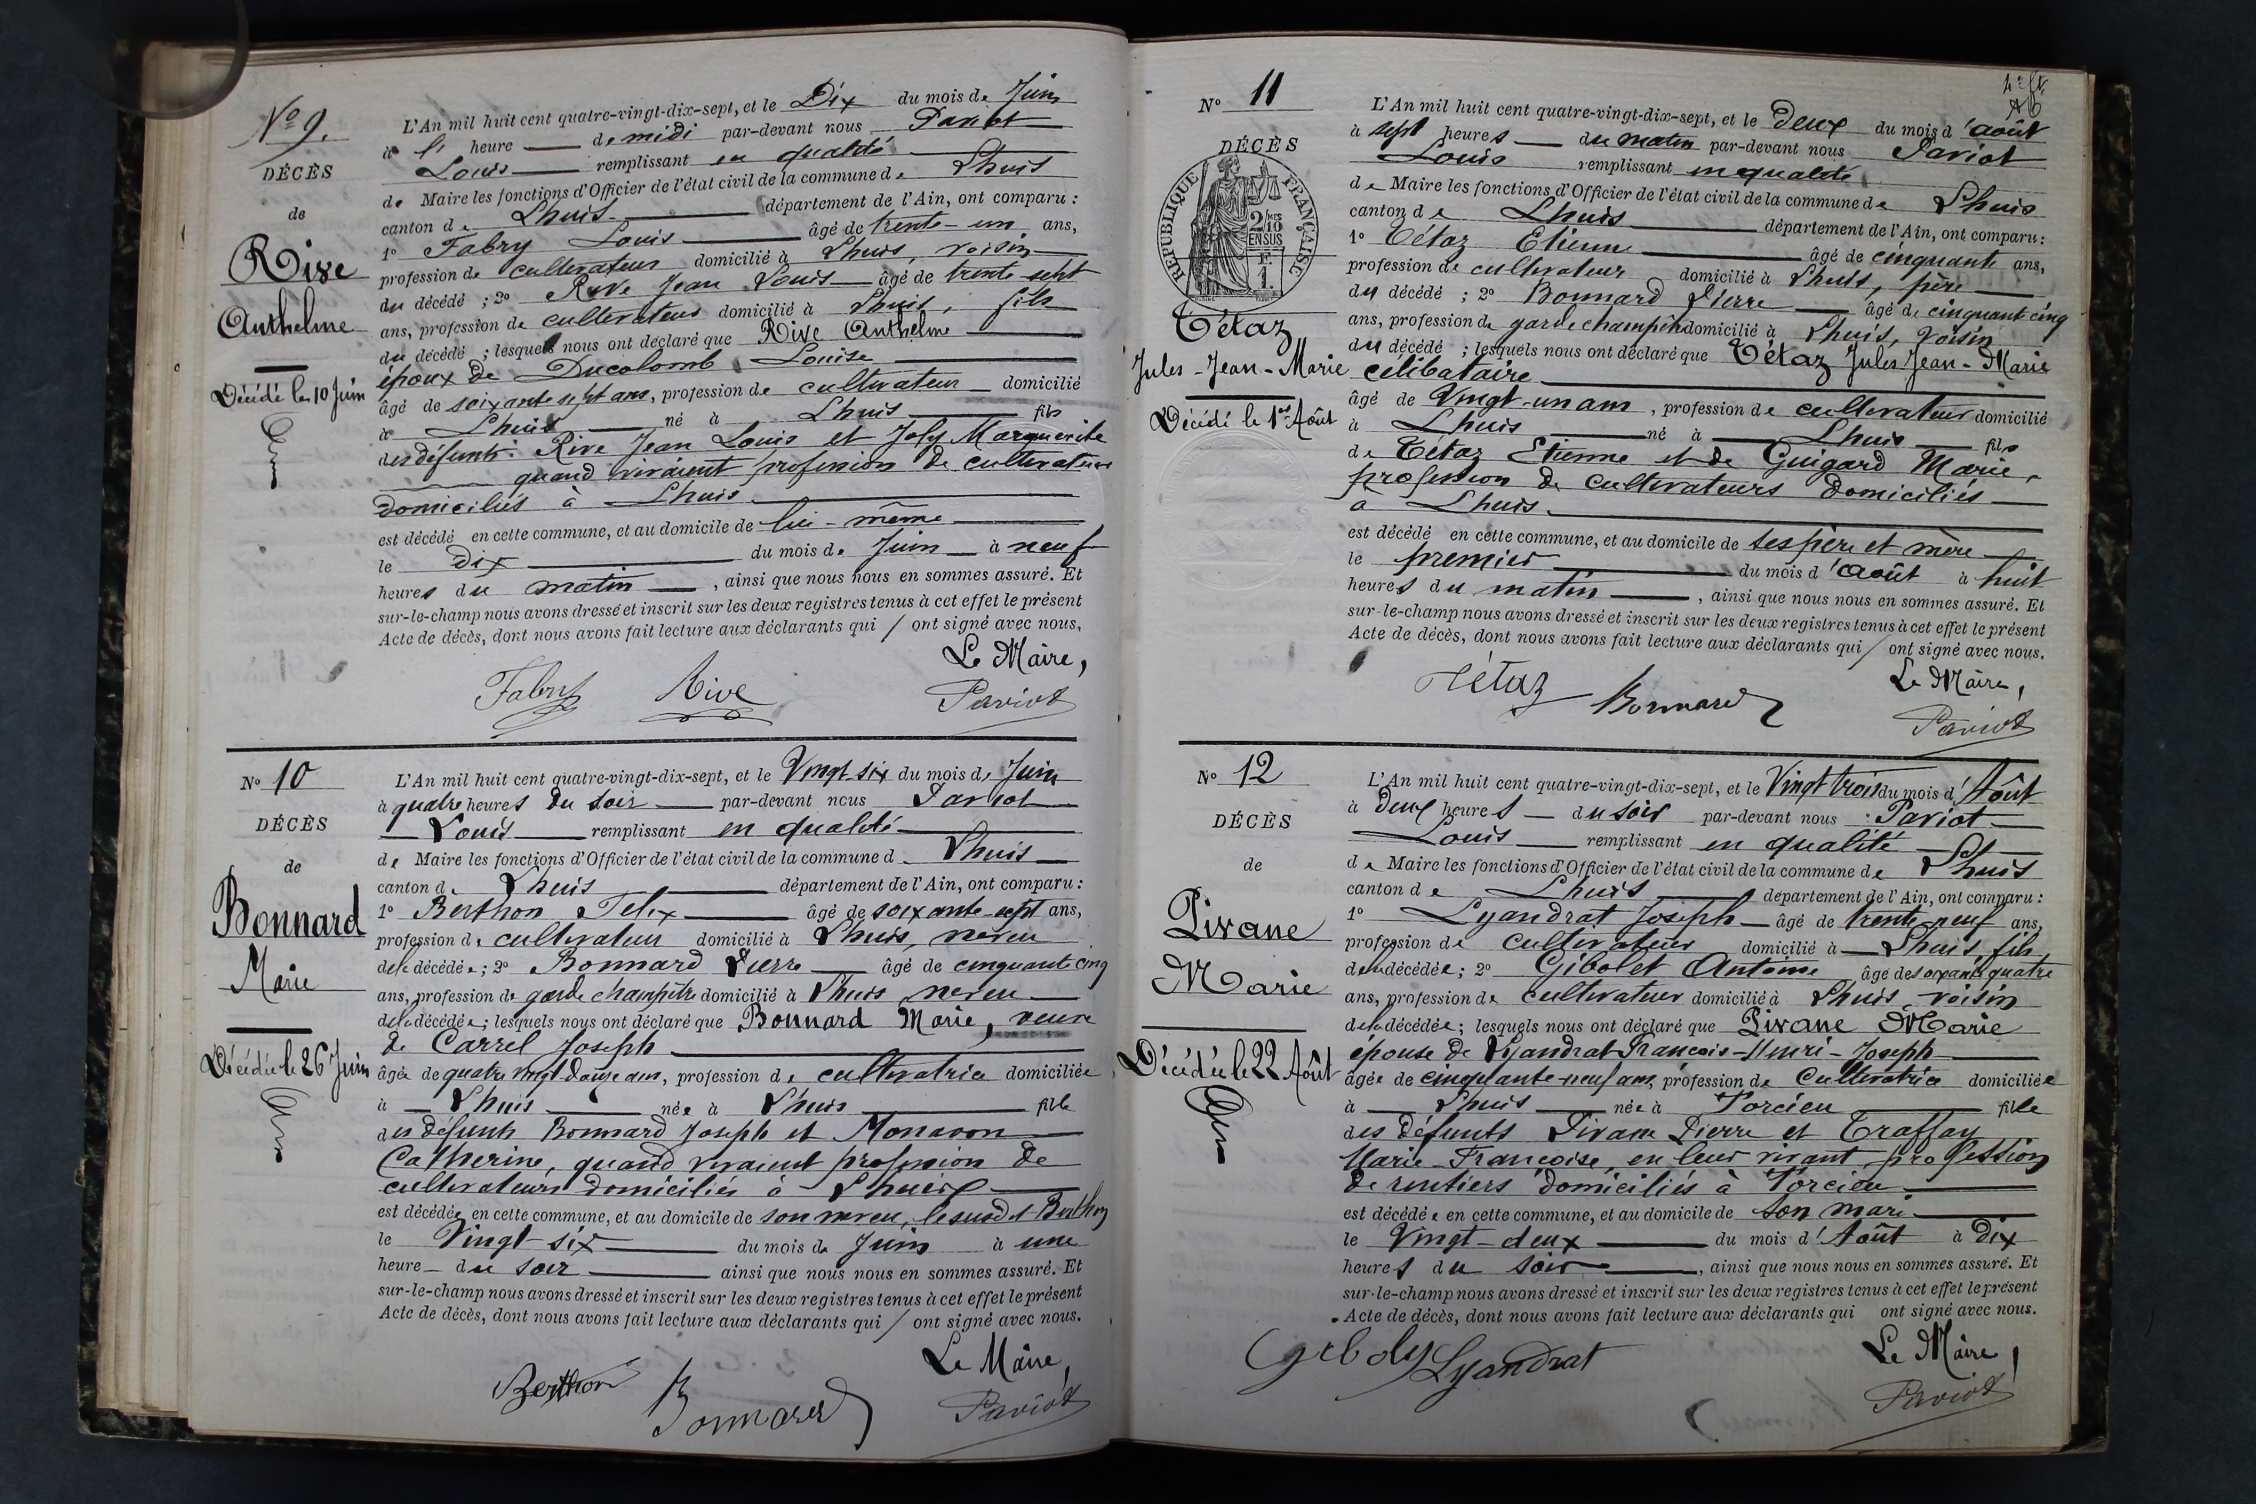 No 9.
DÉCÈS
de
Rive
Anthelme
Décédé le 10 Juin
L'An mil huit cent quatre-vingt-dix-sept, et le Dix du mois de Juin
à heure de midi par-devant nous Pariot
Louis remplissant en qualité
de Maire les fonctions d'Officier de l'état civil de la commune de Lhuis
canton de Lhuis département de l'Ain, ont comparu :
1° Fabry Louis âgé de trente-un ans,
profession de cultivateur domicilié à Lhuis, voisin
du décédé ; 2° Rive Jean Louis âgé de trente sept
ans, profession de cultivateur domicilié à Lhuis, fils
du décédé ; lesquels nous ont déclaré que Rive Anthelme
époux de Ducolomb Louise
âgé de soixante sept ans, profession de cultivateur domicilié
à Lhuis né à Lhuis fils
des défunts Rive Jean Louis et Joly Marguerite
quand vivaient profession de cultivateurs
domiciliés à Lhuis
est décédé en cette commune, et au domicile de lui-même
le Dix du mois de Juin à neuf
heures du matin , ainsi que nous nous en sommes assuré. Et
sur-le-champ nous avons dressé et inscrit sur les deux registres tenus à cet effet le présent
Acte de décès, dont nous avons fait lecture aux déclarants qui / ont signé avec nous.
Le Maire,
Fabry Rive Pariot
N° 10
DÉCÈS
de
Bonnard
Marie
Décédée le 26 Juin
L'An mil huit cent quatre-vingt-dix-sept, et le Vingt-six du mois de Juin
à quatre heures du soir par-devant nous Pariot
Louis remplissant en qualité
de Maire les fonctions d'Officier de l'état civil de la commune de Lhuis
canton de Lhuis département de l'Ain, ont comparu :
1° Berthon Felix âgé de soixante-sept ans,
profession de cultivateur domicilié à Lhuis, neveu
de la décédée ; 2° Bonnard Pierre âgé de cinquante cinq
ans, profession de garde champêtre domicilié à Lhuis neveu
de la décédée ; lesquels nous ont déclaré que Bonnard Marie, veuve
de Carrel Joseph
âgée de quatre vingt douze ans, profession de cultivatrice domiciliée
à Lhuis née à Lhuis fille
des défunts Bonnard Joseph et Monavon
Catherine, quand vivaient profession de
cultivateurs domiciliés à Lhuis
est décédée en cette commune, et au domicile de son neveu, le susdit Berthon
le Vingt-six du mois de Juin à une
heure du soir ainsi que nous nous en sommes assuré. Et
sur-le-champ nous avons dressé et inscrit sur les deux registres tenus à cet effet le présent
Acte de décès, dont nous avons fait lecture aux déclarants qui / ont signé avec nous.
Le Maire,
Berthon Bonnard Pariot
N° 11
DÉCÈS
RÉPUBLIQUE FRANÇAISE
2/10 MES
EN SUS
Tétaz
Jules-Jean-Marie
Décédé le 1er Août
L'An mil huit cent quatre-vingt-dix-sept, et le Deux du mois d'août
à sept heures du matin par-devant nous Pariot
Louis remplissant en qualité
de Maire les fonctions d'Officier de l'état civil de la commune de Lhuis
canton de Lhuis département de l'Ain, ont comparu :
1° Tétaz Etienne âgé de cinquante ans,
profession de cultivateur domicilié à Lhuis, père
du décédé ; 2° Bonnard Pierre âgé de cinquante cinq
ans, profession de garde champêtre domicilié à Lhuis, voisin
du décédé ; lesquels nous ont déclaré que Tétaz Jules Jean-Marie
célibataire
âgé de Vingt-un ans , profession de cultivateur domicilié
à Lhuis né à Lhuis fils
de Tétaz Etienne et de Guigard Marie,
profession de cultivateurs domiciliés
à Lhuis
est décédé en cette commune, et au domicile de ses père et mère
le premier du mois d'août à huit
heures du matin , ainsi que nous nous en sommes assuré. Et
sur-le-champ nous avons dressé et inscrit sur les deux registres tenus à cet effet le présent
Acte de décès, dont nous avons fait lecture aux déclarants qui / ont signé avec nous.
Le Maire,
Tétaz Bonnard Pariot
N° 12
DÉCÈS
de
Pivane
Marie
Décédée le 22 Août
L'An mil huit cent quatre-vingt-dix-sept, et le Vingt trois du mois d'Août
à Deux heures du soir par-devant nous Pariot
Louis remplissant en qualité
de Maire les fonctions d'Officier de l'état civil de la commune de Lhuis
canton de Lhuis département de l'Ain, ont comparu :
1° Lyandrat Joseph âgé de trente neuf ans,
profession de cultivateur domicilié à Lhuis fils
de la décédée ; 2° Gibolet Antoine âgé de soixante quatre
ans, profession de cultivateur domicilié à Lhuis, voisin
de la décédée ; lesquels nous ont déclaré que Pivane Marie
épouse de Lyandrat François-Henri-Joseph
âgée de cinquante-neuf ans, profession de Cultivatrice domiciliée
à Lhuis née à Torcieu fille
des défunts Pivane Pierre et Traffay
Marie-Françoise, en leur vivant profession
de rentiers domiciliés à Torcieu
est décédée en cette commune, et au domicile de son mari
le Vingt-deux du mois d'Août à Dix
heures du soir , ainsi que nous nous en sommes assuré. Et
sur-le-champ nous avons dressé et inscrit sur les deux registres tenus à cet effet le présent
Acte de décès, dont nous avons fait lecture aux déclarants qui ont signé avec nous.
Le Maire,
Lyandrat Pariot